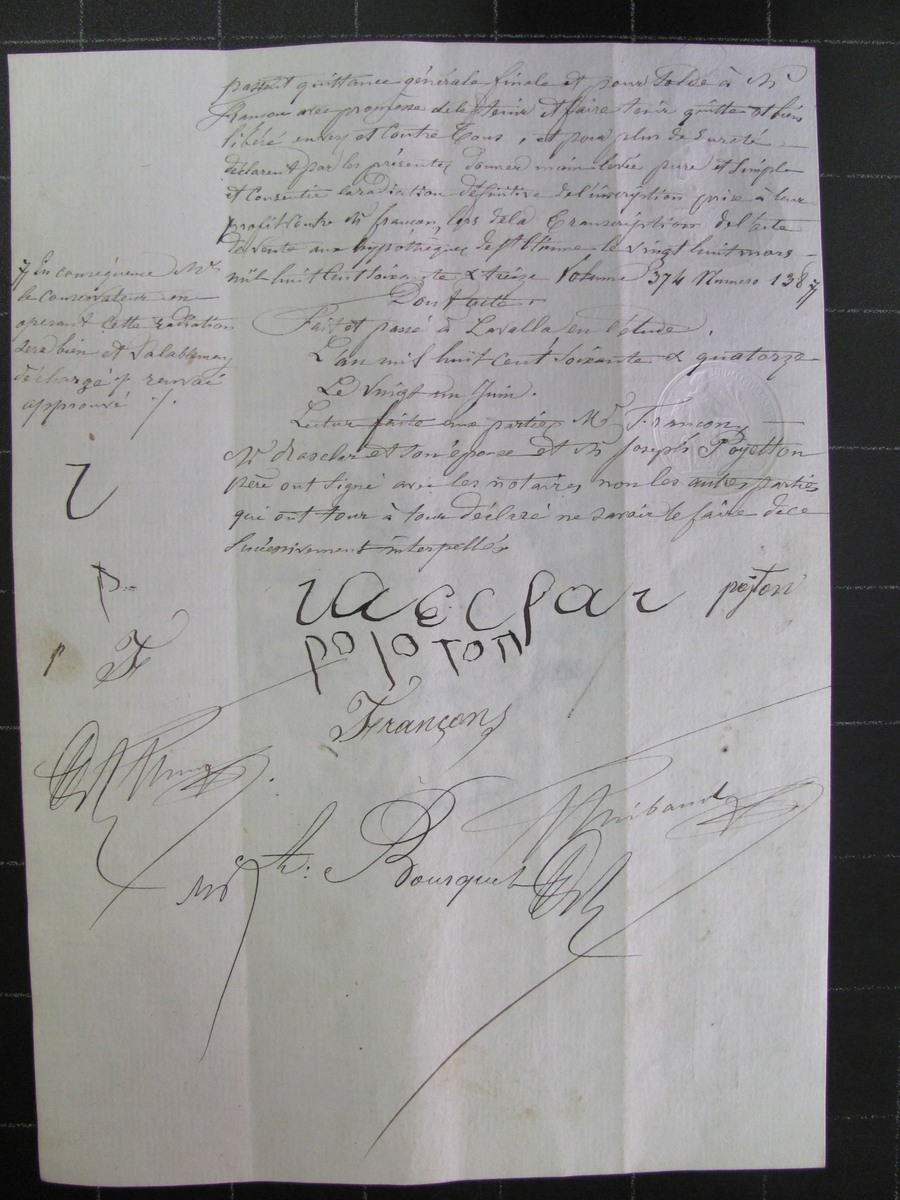 passent quittance générale finale et pour solde à Mr
Françon avec promesse de le tenir et faire tenir quitte et bien
libéré envers et contre tous, et pour plus de sureté
déclarent par les présentes donner main levée pure et simple
et consentir la radiation définitive de l'inscription prise à leur
profit contre Mr françon, lors de la transcription de l'acte
de vente aux hypothèques de St Etienne le vingt huit mars
mil huit cent soixante & treize Volume 374 Numero 138
Dont acte
Fait et passé à Lavalla en l'étude.
L'an mil huit cent soixante & quatorze
Le vingt un Juin.
Lecture faite aux parties Mr Françon,
Mr et son épouse et Mr Joseph Poyetton
père ont signé avec les notaires non les autres parties
qui ont tour à tour déclaré ne savoir le faire de ce
successivement interpellés
En conséquence Mr
le conservateur en
opérant cette radiation
sera bien et valablement
déchargé renvoi
approuvé
p
F
poyton
pojoton
Françon
Thibaud
Bourguet